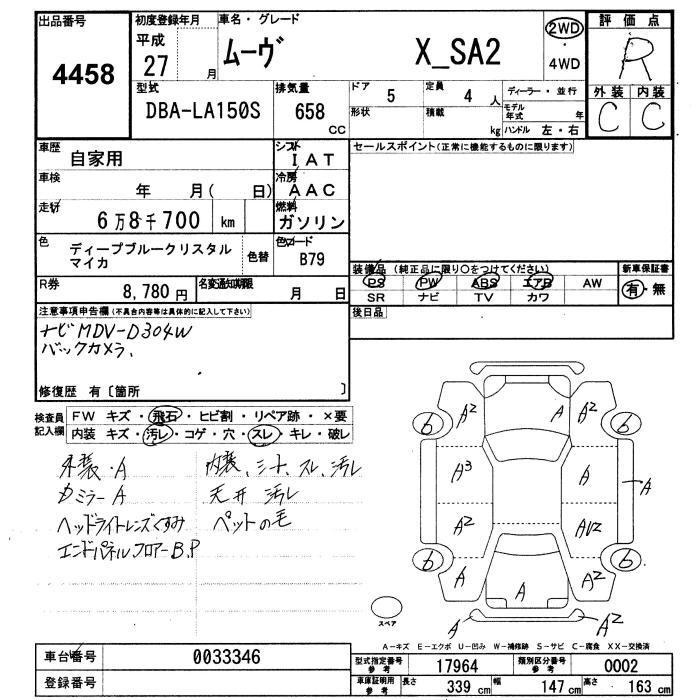 出品番号
4458
初度登録年月
平成
27 月
車名・グレード
ムーヴ X_SA2
2WD
4WD
評価点
R
外装 内装
C C
型式
DBA-LA150S
排気量
658
CC
ドア
5
定員
4 人
形状
積載
kg
ディーラー・並行
モデル
年式 年
ハンドル 左・右
車歴
自家用
シフト
IAT
セールスポイント(正常に機能するものに限ります)
車検
年 月( 日)
冷房
AAC
走行
6万8千700 km
燃料
ガソリン
色
ディープブルークリスタル
マイカ
色替
色コード
B79
装備品 (純正品に限り○をつけてください)
PS PW ABS エアB AW
SR ナビ TV カワ
新車保証書
有・無
R券
8,780円
名変通知期限
月 日
後日品
注意事項申告欄(不具合内容等は具体的に記入して下さい)
ナビ MDV-D304W
バックカメラ、
修復歴 有〔箇所 〕
検査員
記入欄
FW キズ・飛石・ヒビ割・リペア跡・×要
内装 キズ・汚レ・コゲ・穴・スレ・キレ・破レ
外装・A
カミラーA
ヘッドライトレンズくすみ
エンドパネル フロアーB.P
内装、シート、スレ、汚レ
天井 汚レ
ペットの毛
A² A A²
6 6
A³ A A
A² AU2
6 6
A A A²
A A²
スペア
A-キズ E-エクボ U-凹み W-補修跡 S-サビ C-腐食 XX-交換済
車台番号
0033346
登録番号
型式指定番号
参考
17964
類別区分番号
参考
0002
車庫証明用
参考
長さ
339 cm
幅
147 cm
高さ
163 cm